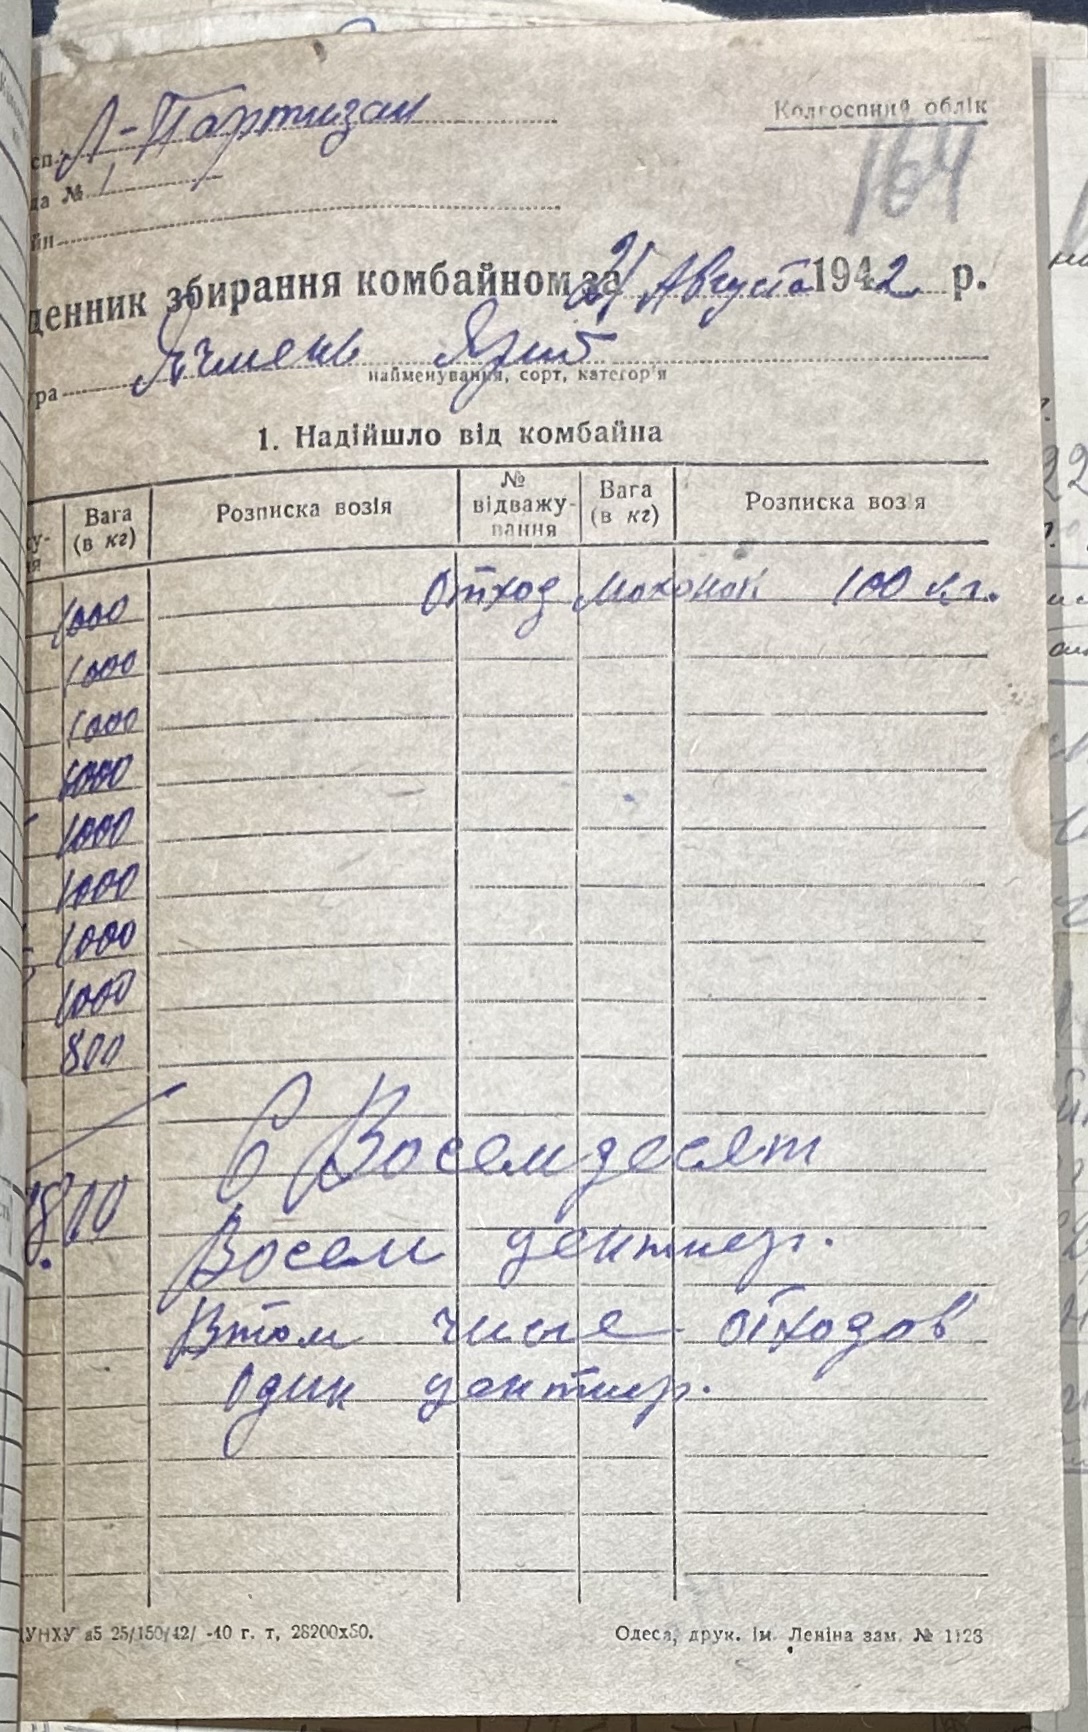 Колгоспний облік
164
сп. Л-Партизан
да № 1
йн
денник збирання комбайном за 21 Августа 1942 р.
ура Ячмень Ярий
найменування, сорт, категор'я
1. Надійшло від комбайна
Вага (в кг) Розписка возія № відважу-вання Вага (в кг) Розписка воз я
1000 Отход 100 кг.
1000
1000
1000
1000
1000
1000
1000
800
Восемдесят
8800
Восем центнер.
Втом числе отходов
Один центнер.
УНХУ а5 25/150/42/ -40 г. т, 28200х50.
Одеса, друк. ім. Леніна зам. № 1128